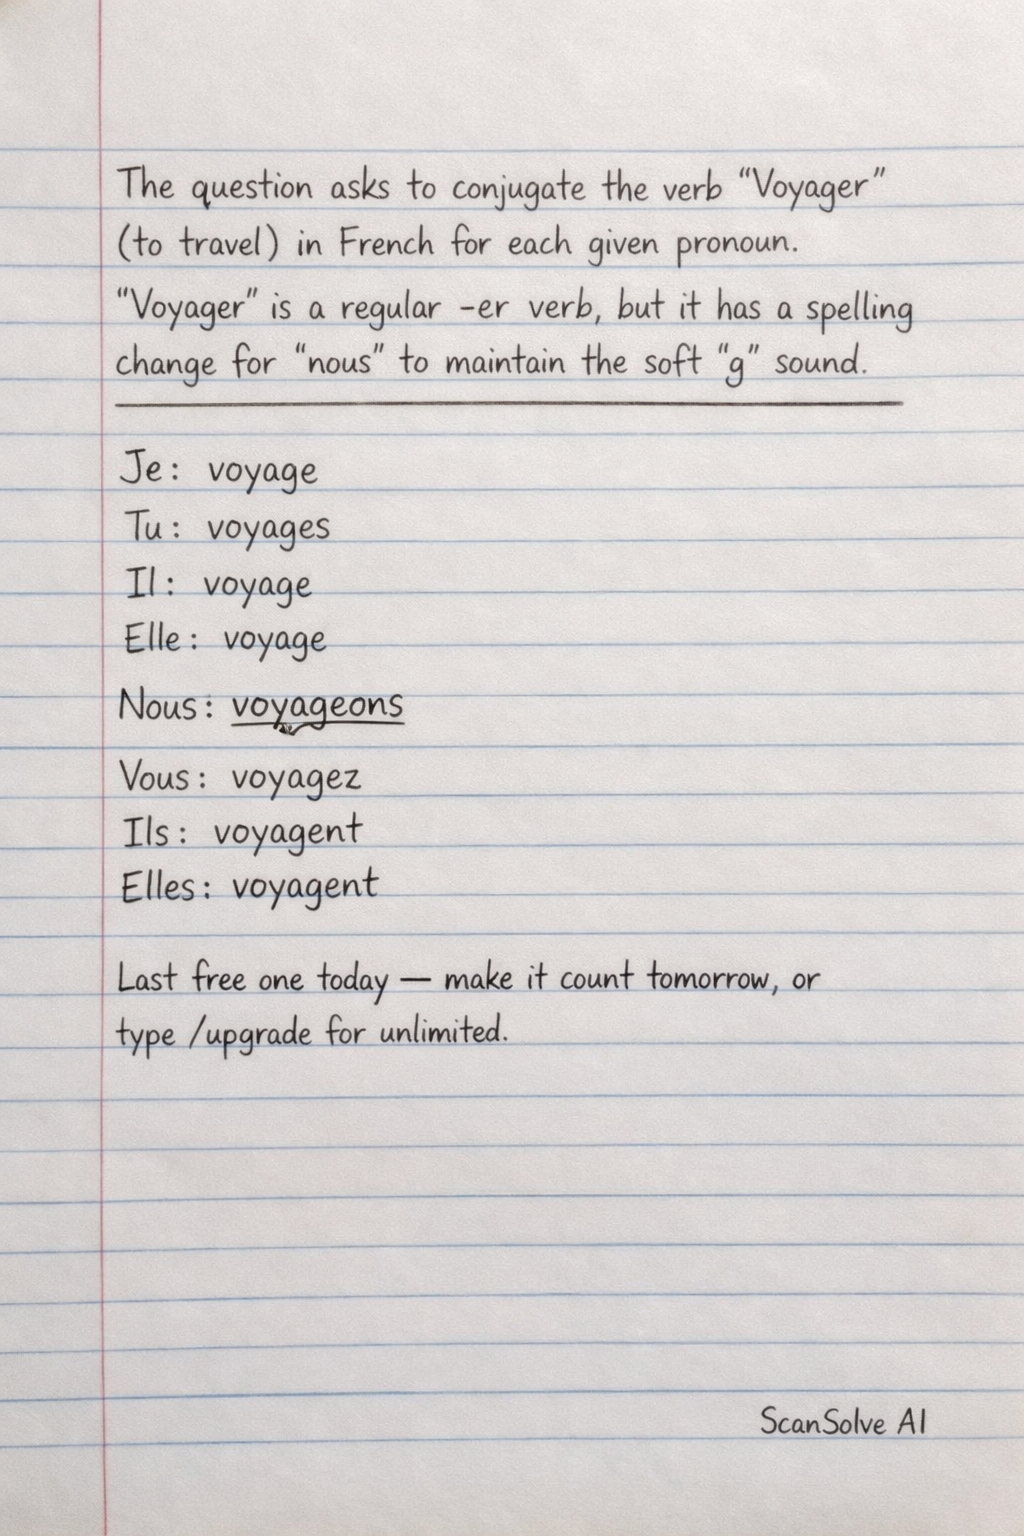 The question asks to conjugate the verb “Voyager”
(to travel) in French for each given pronoun.
“Voyager” is a regular -er verb, but it has a spelling
change for “nous” to maintain the soft “g” sound.
Je: voyage
Tu: voyages
Il: voyage
Elle: voyage
Nous: voyageons
Vous: voyagez
Ils: voyagent
Elles: voyagent
Last free one today — make it count tomorrow, or
type /upgrade for unlimited.
ScanSolve AI